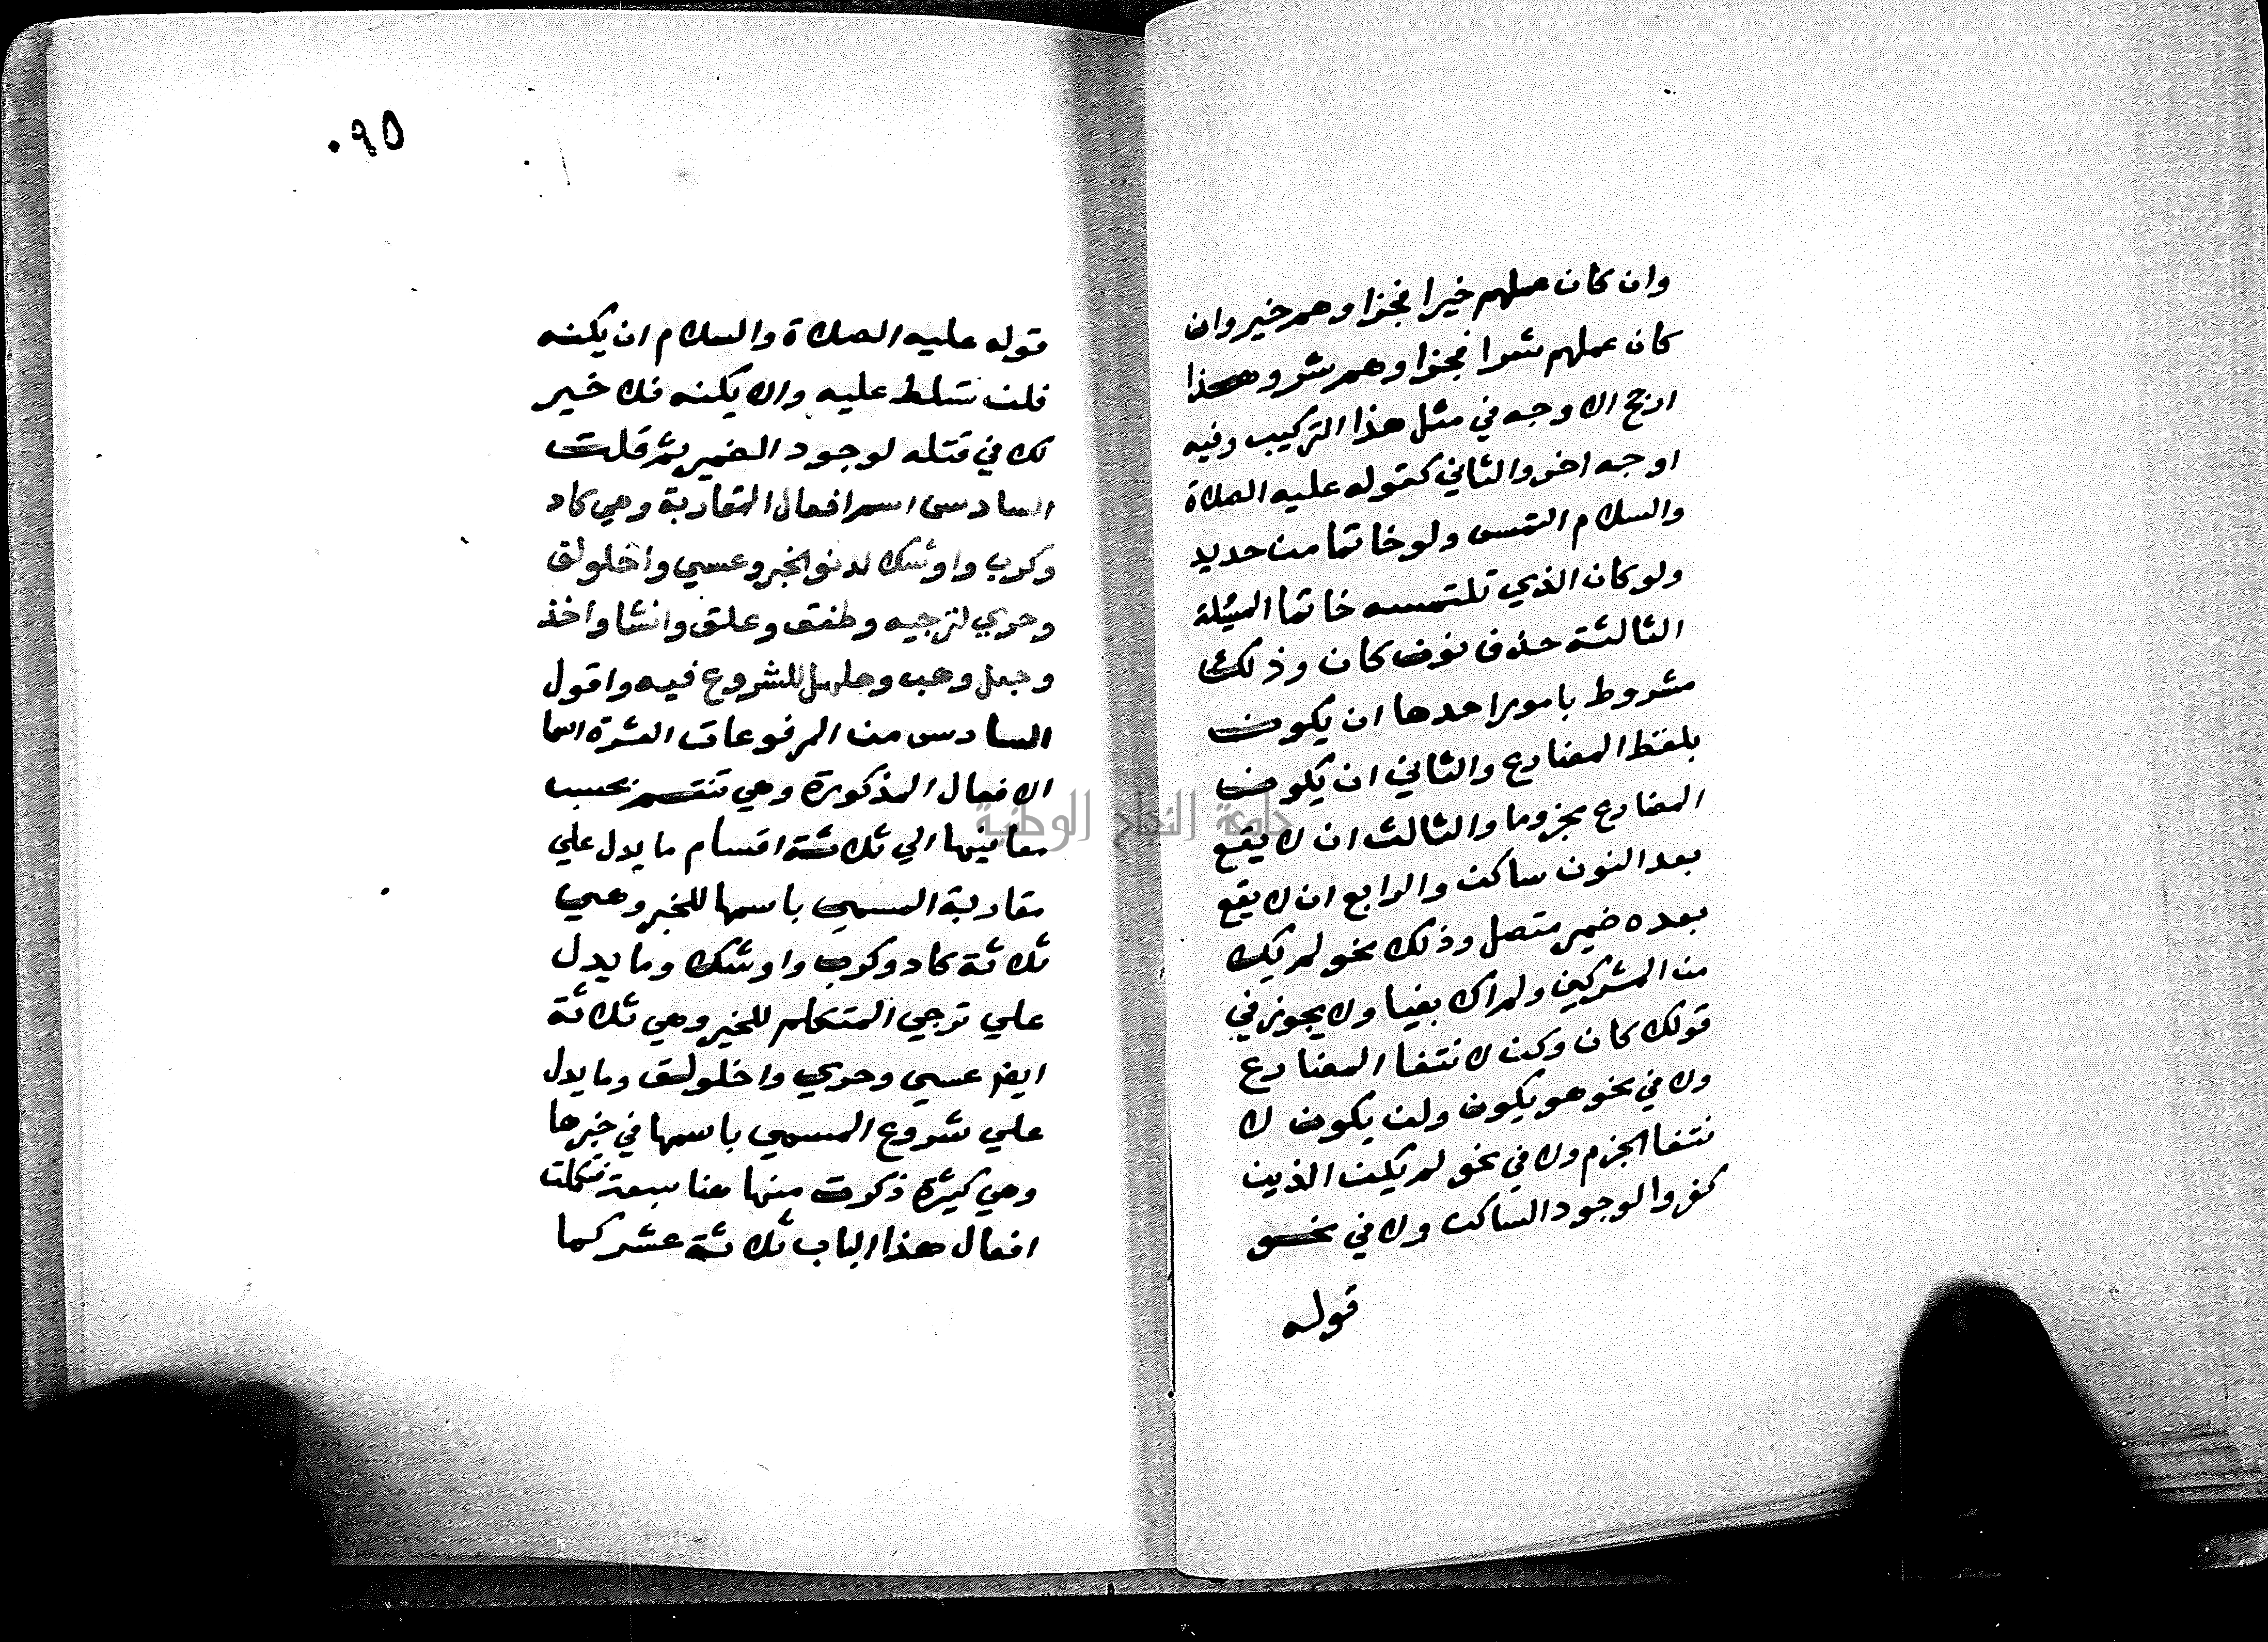 وان كان عملهم خيرا فجزاوهم خير وان
كان عملهم شرا فجزاوهم شر وهذا
ارجح الاوجه في مثل هذا التركيب وفيه
اوجه اخر والثاني كقوله عليه الصلاة
والسلام التمس ولو خاتما من حديد
ولو كان الذي تلتمسه خاتما المسئلة
الثالثة حذف نون كان وذلك
مشروط بامور احدها ان يكون
بلفظ المضارع والثاني ان يكون
المضارع مجزوما والثالث ان لا يقع
بعد النون ساكن والرابع ان لا يقع
بعده ضمير متصل وذلك نحو لم يك
من المشركين ولم اك بغيا ولا يجوز في
قولك كان وكن لانتفا المضارع
ولا في نحو هو يكون ولن يكون لا
نتفا الجزم ولا في نحو لم يكن الذين
كفروا لوجود الساكن ولا في نحو
قوله
٠٩٥
قوله عليه الصلاة والسلام ان يكنه
فلن تسلط عليه والا يكنه فلا خير
لك في قتله لوجود الضمير ثم قلت
السادس اسم افعال المقاربة وهي كاد
وكرب واوشك لدنو الخبر وعسي واخلولق
وحري لترجيه وطفق وعلق وانشا واخذ
وجعل وهب وهلهل للشروع فيه واقول
السادس من المرفوعات العشرة اسما
الافعال المذكورة وهي تنقسم بحسب
معانيها الي ثلاثة اقسام ما يدل علي
مقاربة المسمي باسمها للخبر وهي
ثلاثة كاد وكرب واوشك وما يدل
علي ترجي المتكلم للخبر وهي ثلاثة
ايضا عسي وحري واخلولق وما يدل
علي شروع المسمي باسمها في خبرها
وهي كثيرة ذكرت منها هنا سبعة فكملت
افعال هذا الباب ثلاثة عشر كما
جامعة النجاح الوطنية